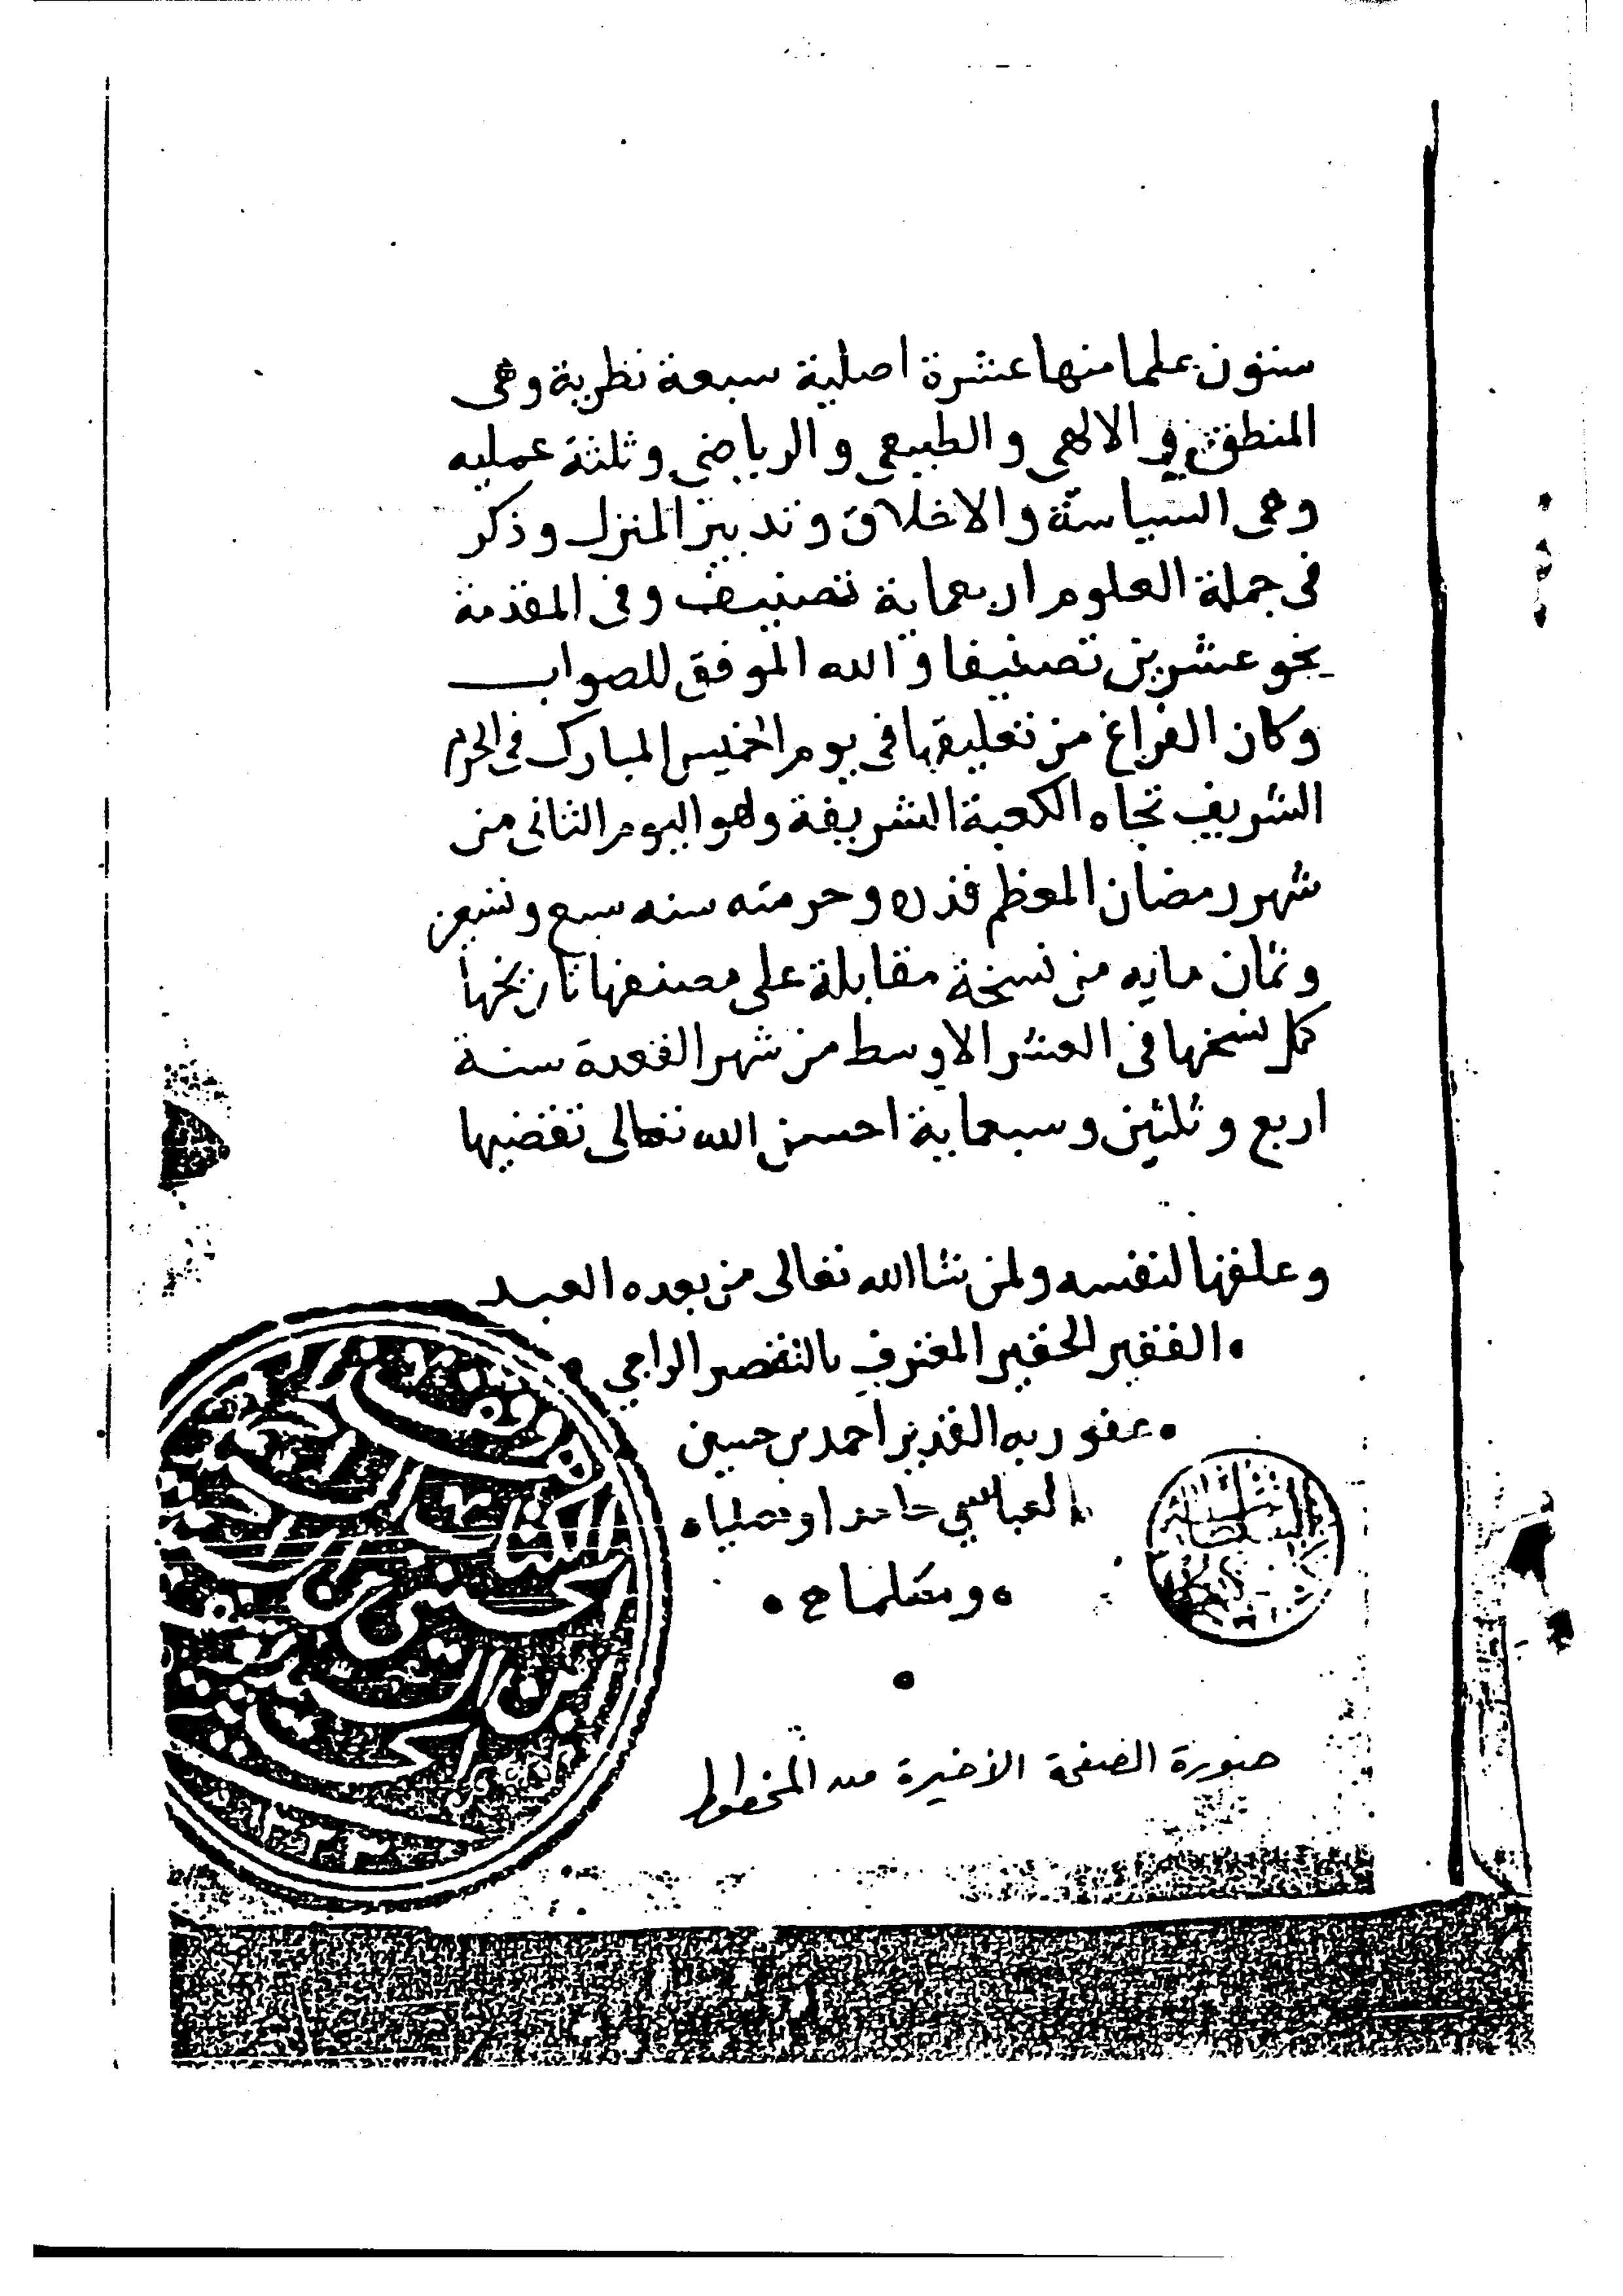 ستون علما منها عشرة اصلية سبعة نظرية وهى
المنطق والالهى والطبيعى والرياضى وثلثة عمليه
وهى السياسة والاخلاق وتدبير المنزل وذكر
فى جملة العلوم اربعماية تصنيف وفى المقدمة
نحو عشرين تصنيفا والله الموفق للصواب
وكان الفراغ من تعليقها فى يوم الخميس المبارك فى الحرم
الشريف تجاه الكعبة الشريفة وهو اليوم الثانى من
شهر رمضان المعظم قدره وحرمته سنه سبع وتسعين
وثمان مايه من نسخة مقابلة على مصنفها تاريخها
كمل نسخها فى العشر الاوسط من شهر القعدة سنة
اربع وثلثين وسبعماية احسن الله تعالى تقضيها
وعلقها لنفسه ولمن شا الله تعالى من بعده العبد
الفقير الحقير المعترف بالتقصير الراجى
عفو ربه القدير احمد بن حسين
العباسي حامدا ومصليا
ومسلما
صورة الصفحة الأخيرة من المخطوط